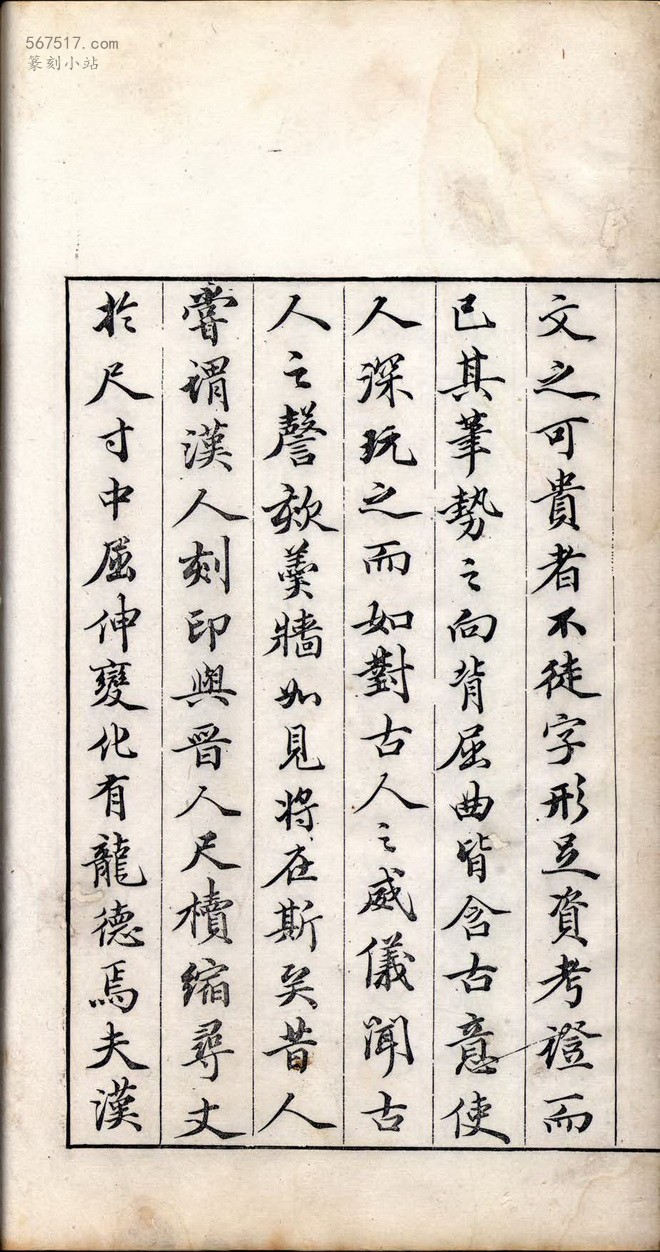 567517.com
篆刻小站
文之可貴者不徒字形足資考證而
已其筆勢之向背屈曲皆含古意使
人深玩之而如對古人之威儀聞古
人之謦欬羹牆如見將在斯矣昔人
嘗謂漢人刻印與晉人尺牘縮尋丈
於尺寸中屈伸變化有龍德焉夫漢